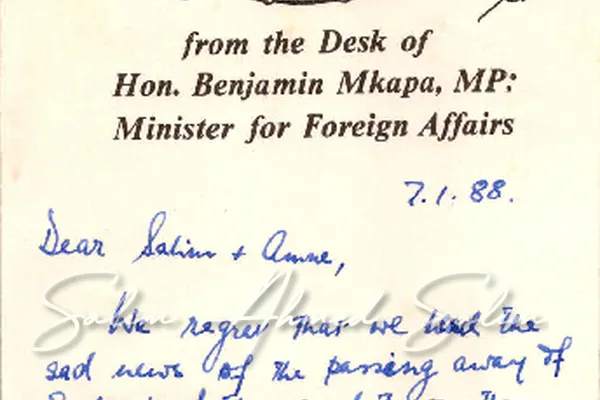 from the Desk of
Hon. Benjamin Mkapa, MP:
Minister for Foreign Affairs
7.1.88.
Dear Salim + Amne,
Salim Ahmed Salim
We regret that we heard the
sad news of the passing away of